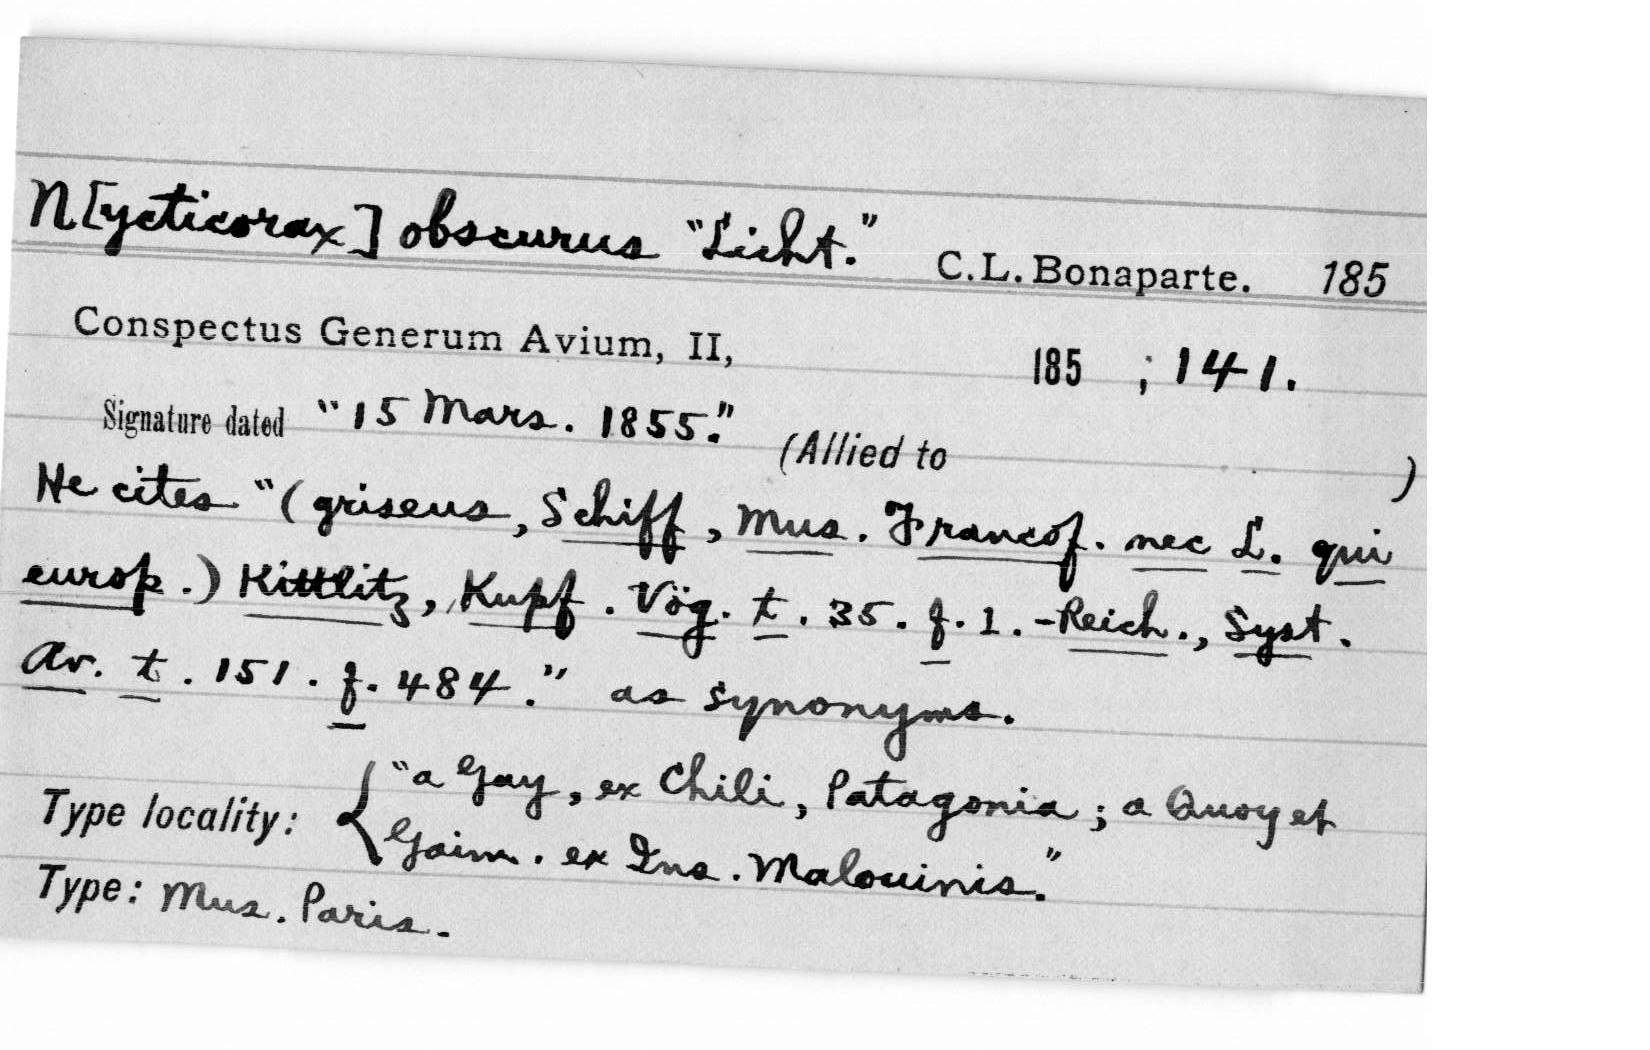 N[ycticorax] obscurus "Licht." C.L. Bonaparte. 185
Conspectus Generum Avium, II, 185 ; 141.
Signature dated "15 Mars. 1855." (Allied to )
He cites "(griseus, Schiff, Mus. Francof. nec L. qui
europ.) Kittlitz, Kupf. Vög. t. 35. f. 1. - Reich., Syst.
Av. t. 151. f. 484." as synonyms.
Type locality: { "a Gay, ex Chili, Patagonia; a Quoy et
Gaim. ex Ins. Malouinis."
Type: Mus. Paris.